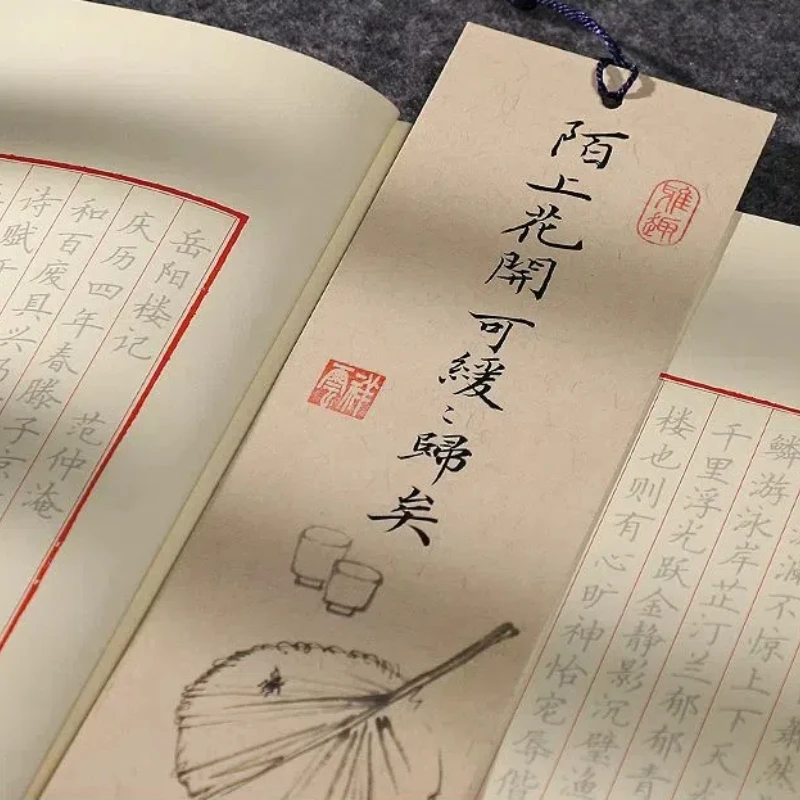 陌上花開可緩〻歸矣
雅趣
祥雲
岳阳楼记 范仲淹
庆历四年春滕子京
和百废具兴乃
诗赋于
澜不惊上下天光
鳞游泳岸芷汀兰郁郁青
千里浮光跃金静影沉璧渔
楼也则有心旷神怡宠辱偕